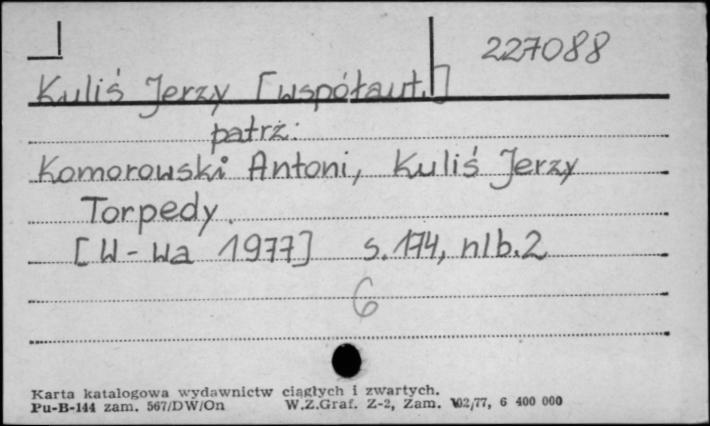 227088
Kuliś Jerzy [współaut.]
patrz:
Komorowski Antoni, Kuliś Jerzy
Torpedy.
[W-wa 1977] s. 174, nlb. 2
6
Karta katalogowa wydawnictw ciągłych i zwartych.
Pu-B-144 zam. 567/DW/On W.Z.Graf. Z-2, Zam. 102/77, 6 400 000